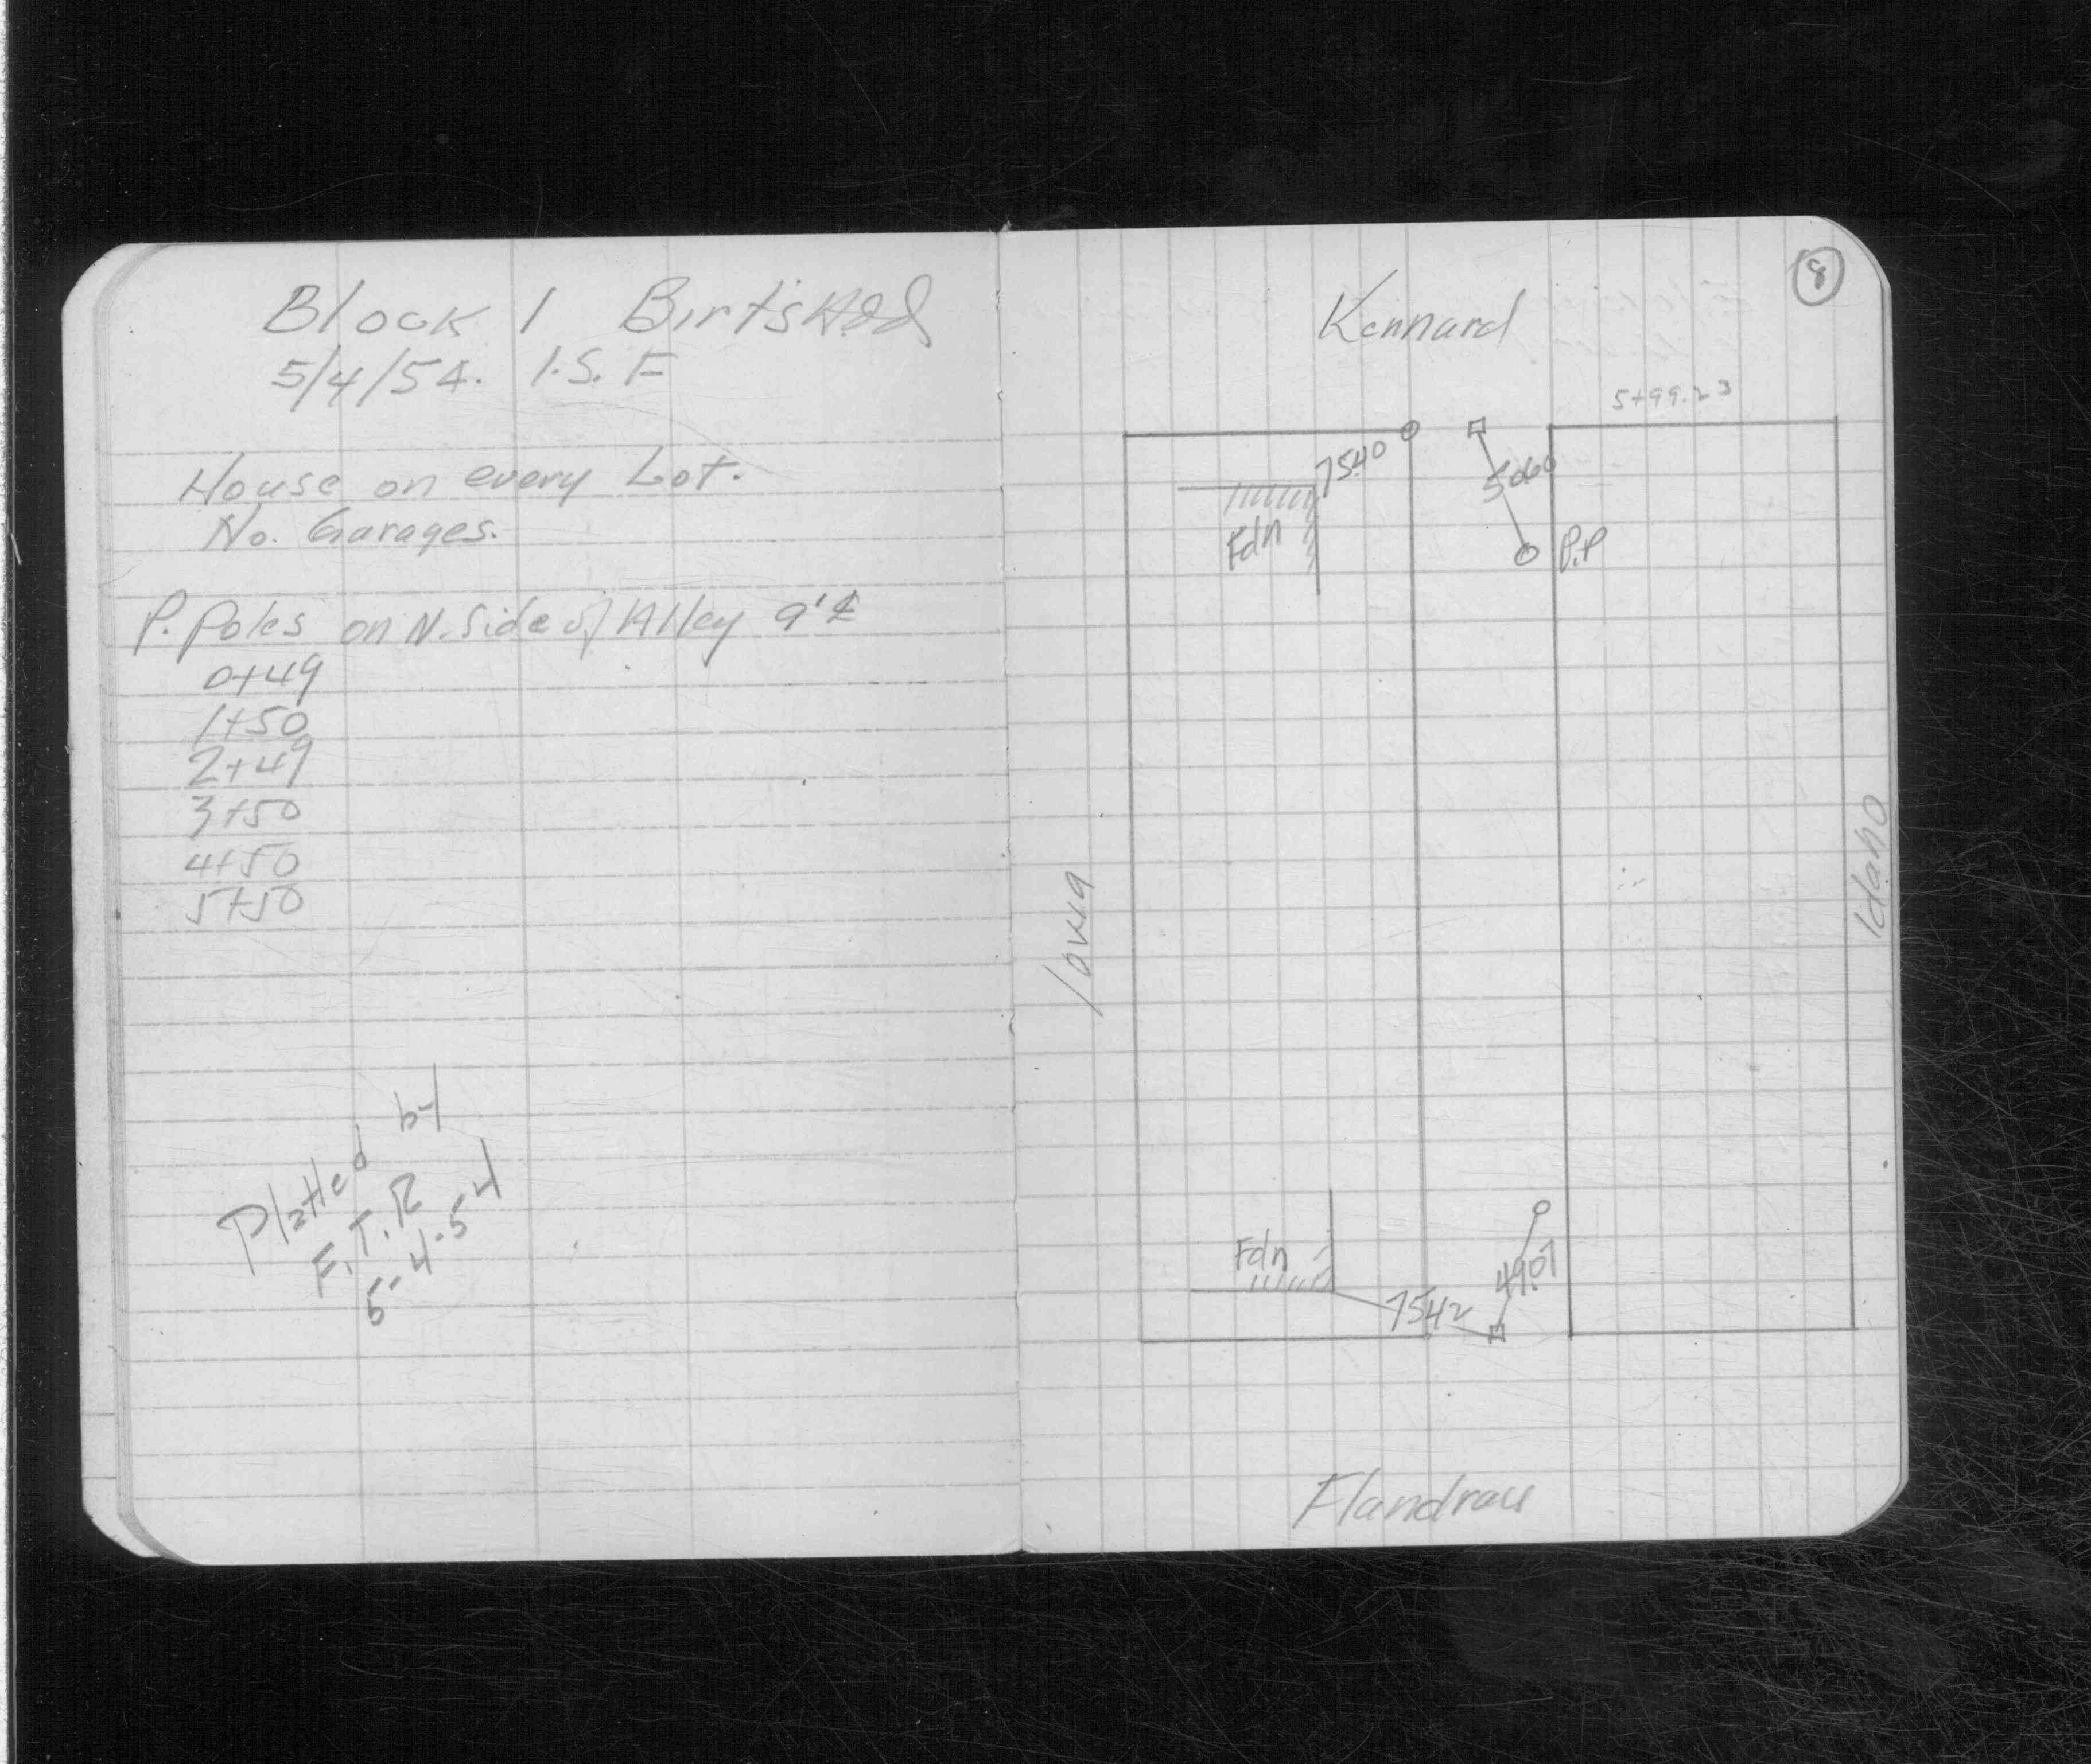 Block 1 Birt's Add
5/4/54. I.S.F
House on every Lot.
No. Garages.
P. Poles on N. Side of Alley 9'
0+49
1+50
2+49
3+50
4+50
5+50
Platted by
F.T.R
5-4-54
8
Kennard
5+99.23
7540
5060
Fdn
P.P
Iowa
Idaho
Fdn
49.07
7542
Flandrau